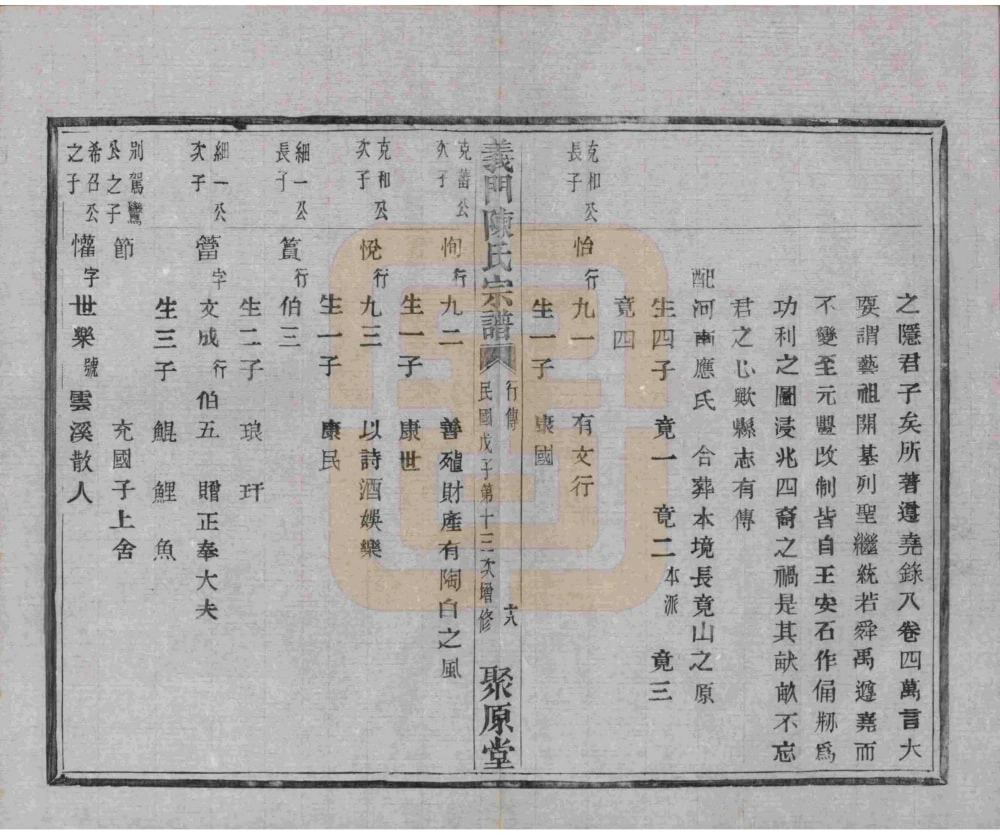 之隱君子矣所著遵堯錄八卷四萬言大
要謂藝祖開基列聖繼統若舜禹遵堯而
不變至元豐改制皆自王安石作俑刱為
功利之圖浸兆四裔之禍是其畎畝不忘
君之心歟縣志有傳
配河南應氏 合葬本境長竟山之原
生四子 竟一 竟二 本派 竟三
竟四
克和公長子 怡 行九一 有文行
生一子 康國
義門陳氏宗譜 行傳 民國戊子第十三次增修 十八 聚原堂
克蕾公次子 恂 行九二 善殖財產有陶白之風
生一子 康世
克和公次子 悅 行九三 以詩酒娛樂
生一子 康民
細一公長子 簋 行伯三
生二子 琅 玕
細一公次子 簹 字文成 行伯五 贈正奉大夫
生三子 鯤 鯉 魚
別駕鸞公之子 節 充國子上舍
希召公之子 懽 字世樂 號雲溪散人